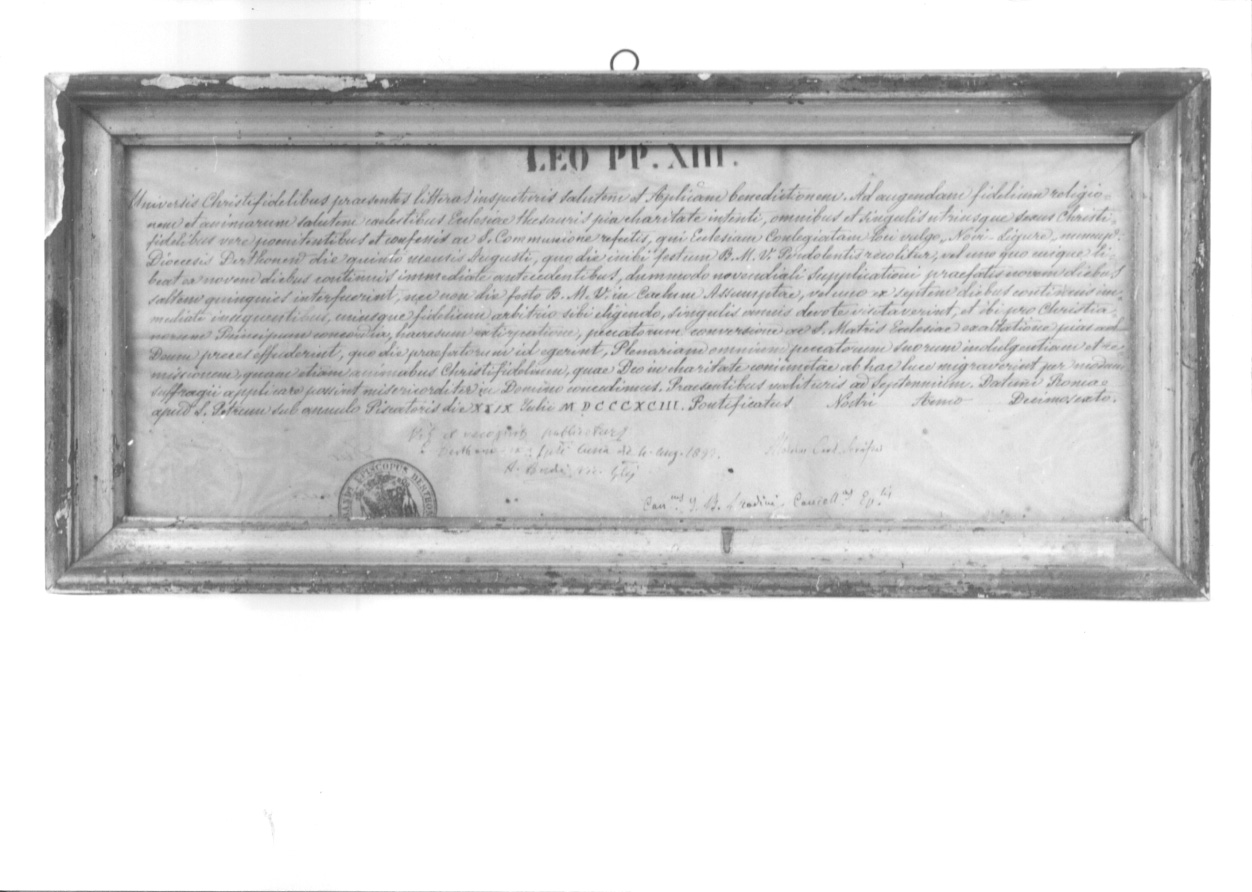 LEO PP. XIII.
Universis Christifidelibus praesentes litteras inspecturis salutem et Aplicam benedictionem. Ad augendam fidelium religio-
nem et animarum salutem coelestibus Ecclesiae thesauris pia charitate intenti, omnibus et singulis utriusque sexus Christi-
fidelibus vere poenitentibus et confessis ac S. Communione refectis, qui Ecclesiam Collegiatam loci vulgo, Novi-Ligure, nuncup.
Dioecesis Derthonen die quinto mensis Augusti, quo die inibi festum B. M. V. recolitur, vel uno quo cuique li-
beat ex novem diebus continuis immediate antecedentibus, dummodo novendiali supplicationi praefatis novem diebus
saltem quinquies interfuerint, nec non die festo B. M. V. in Coelum Assumptae, vel uno ex septem diebus continuis im-
mediate insequentibus, cuiusque fidelium arbitrio sibi eligendo, singulis annis devote visitaverint, et ibi pro Christia-
norum Principum concordia, haeresum extirpatione, peccatorum conversione ac S. Matris Ecclesiae exaltatione pias ad
Deum preces effuderint, quo die praefatorum id egerint, Plenariam omnium peccatorum suorum indulgentiam et re-
missionem, quam etiam animabus Christifidelium, quae Deo in charitate coniunctae ab hac luce migraverint per modum
suffragii applicare possint misericorditer in Domino concedimus. Praesentibus valituris ad Septennium. Datum Romae
apud S. Petrum sub annulo Piscatoris die XXIX Julii MDCCCXCIII. Pontificatus Nostri Anno Decimosexto.
et recognit publicetur
Curia die 4 Aug. 1893.
Card.
J. B. Cancell. Ep.lis
EPISCOPUS DERTHON